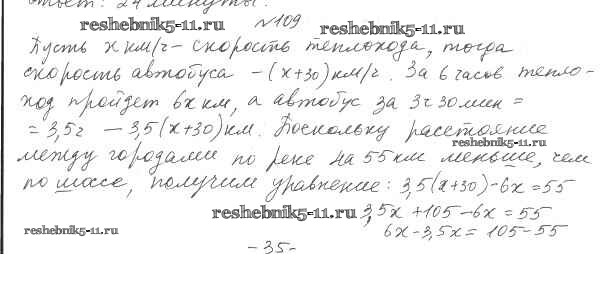 ответ: 24 минуты.
reshebnik5-11.ru №109 reshebnik5-11.ru
Пусть x км/ч - скорость теплохода, тогда
скорость автобуса - (x+30) км/ч. За 6 часов тепло-
ход пройдет 6x км, а автобус за 3ч 30 мин =
= 3,5ч - 3,5(x+30) км. Поскольку расстояние
reshebnik5-11.ru
между городами по реке на 55 км меньше, чем
по шоссе, получим уравнение: 3,5(x+30)-6x=55
reshebnik5-11.ru 3,5x+105-6x=55
reshebnik5-11.ru 6x-3,5x=105-55
-35-